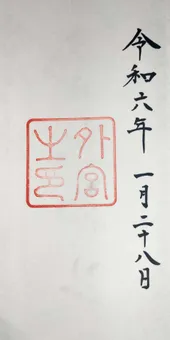 令和六年 一月二十八日
外宮
之印